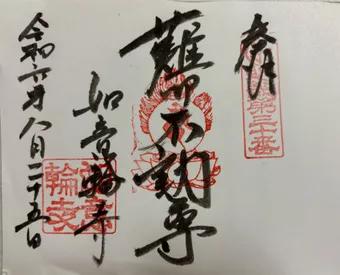 奉拝
第三十番
難切不動尊
如意輪寺
令和六年八月二十五日